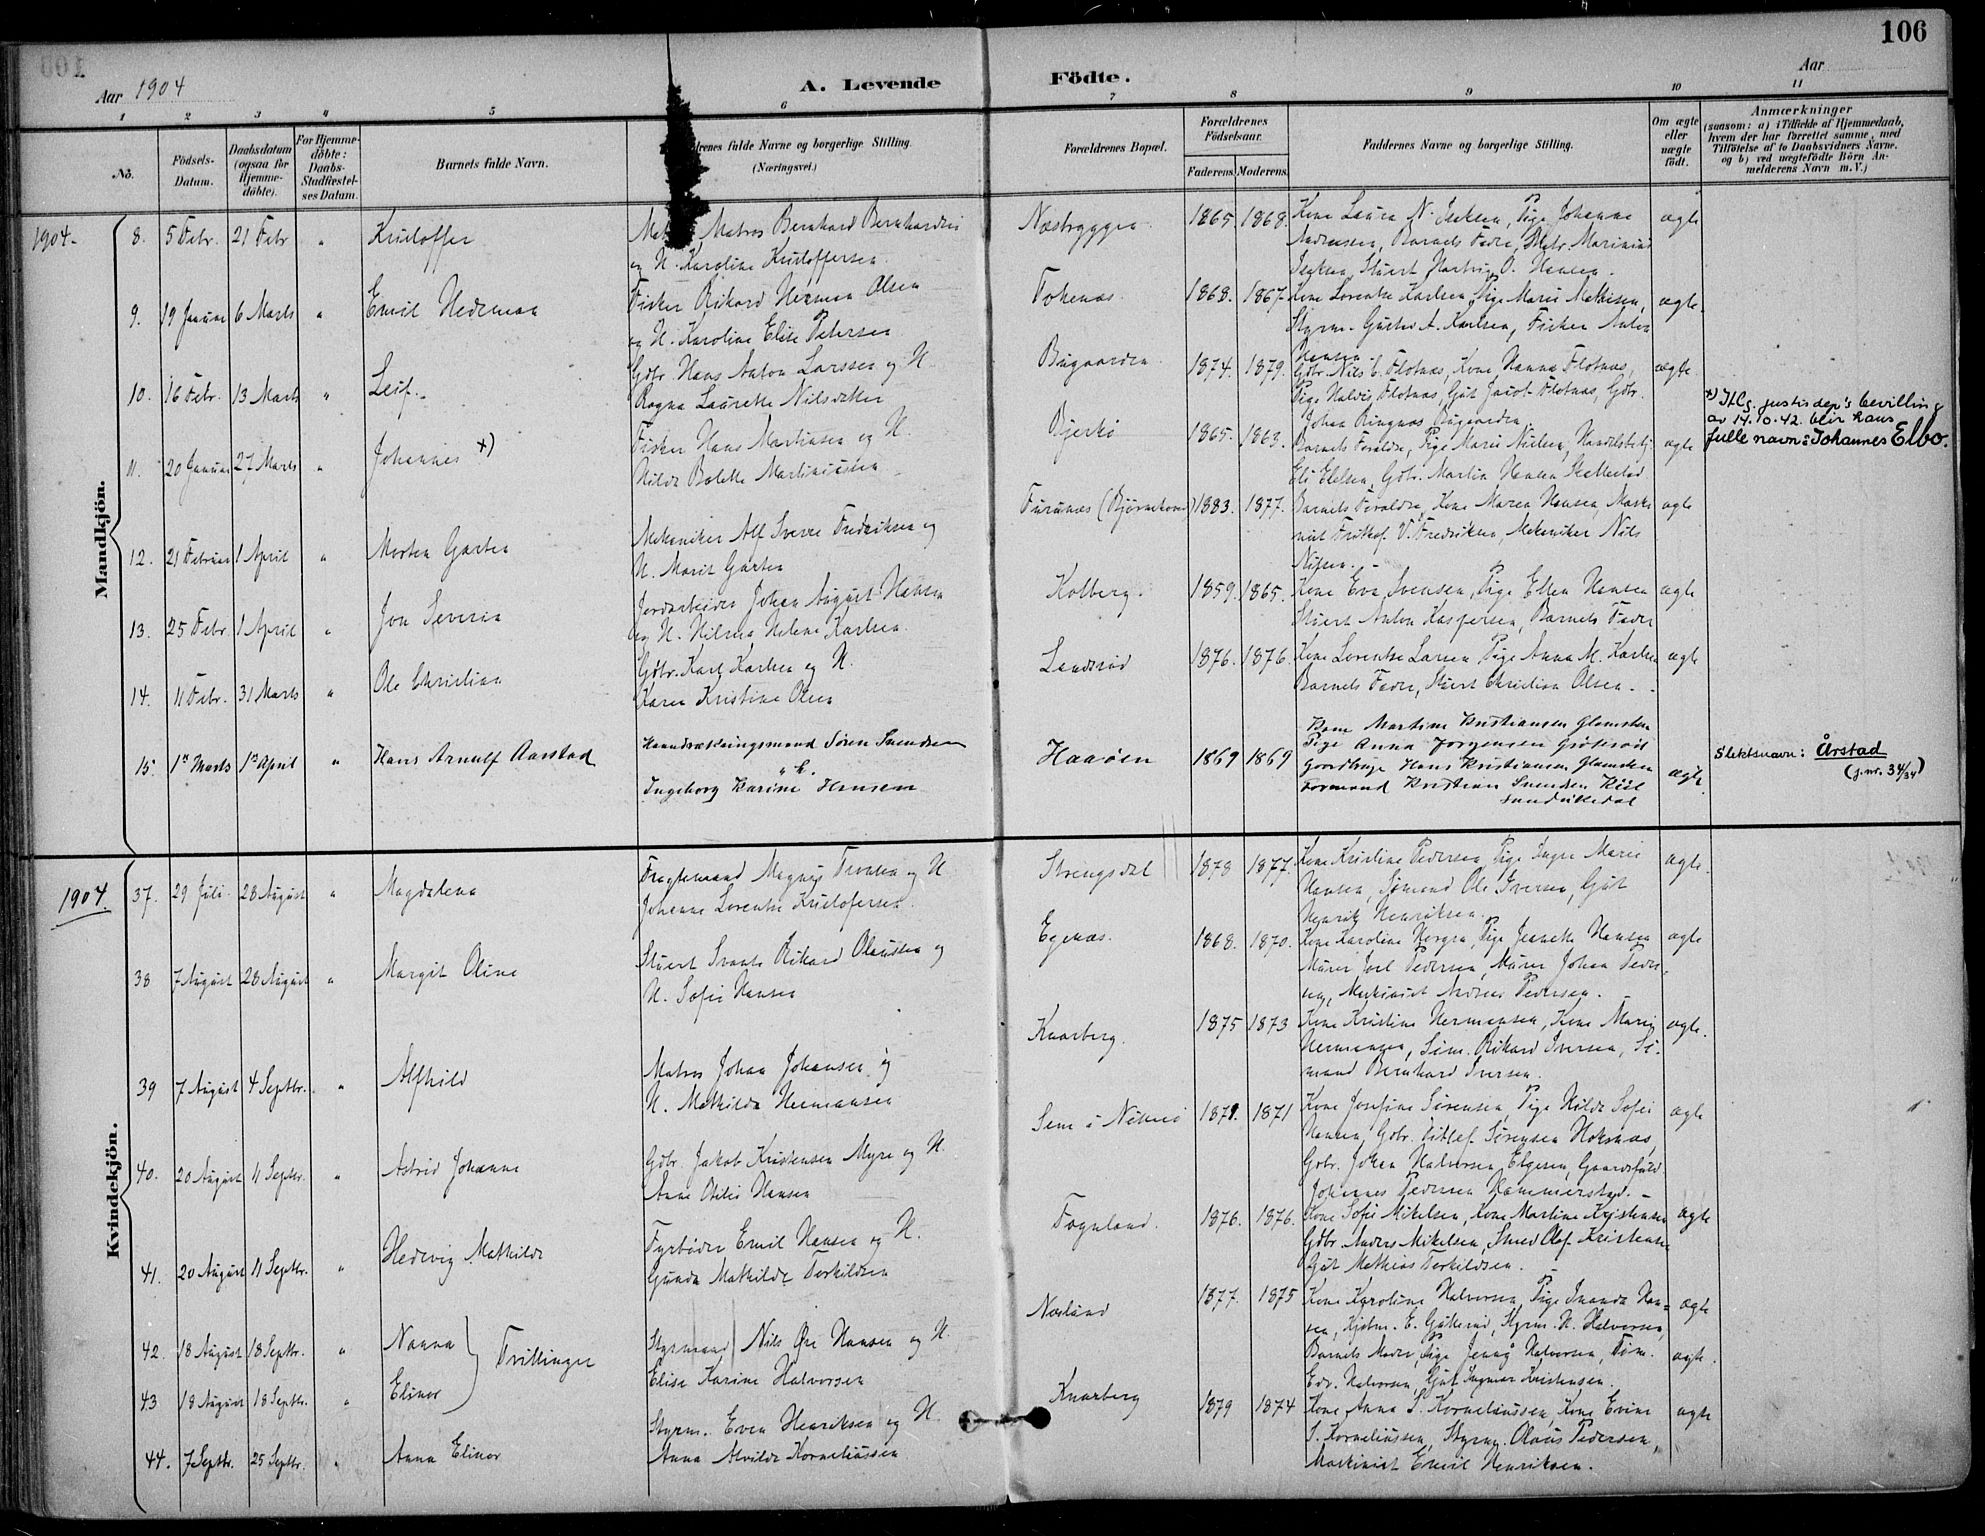 106
Aar 1904
A. Levende Födte.
Aar
1 2 3 4 5 6 7 8 9 10 11
No.
Födsels-Datum.
Daabsdatum (ogsaa for Hjemme-döbte).
For Hjemme-döbte: Daabs-Stadfæstel-ses Datum.
Barnets fulde Navn.
fulde Navne og borgerlige Stilling.
(Næringsvei.)
Forældrenes Bopæl.
Forældrenes Födselsaar.
Faderens. Moderens.
Faddernes Navne og borgerlige Stilling.
Om ægte eller uægte födt.
Anmærkninger
(saasom: a) i Tilfælde af Hjemmedaab, hvem der har forrettet samme, med Tilföielse af to Daabsvidners Navne, og b) ved uægtefödte Börn An-melderens Navn m. V.)
Mandkjön.
1904 - 8. 5 Febr. 21 Febr " Kristoffer
Matros Bernhard Bernhardsen
og H. Karoline Kristoffersen
1865. 1868.
Kone Laura N. Isaksen, Pige Johanne
Andreassen, Barnets Fader, Matr. Marinius
ægte
9. 19 Januar 6 Marts " Emil Hedeman
Fisker Rikard Herman Olsen
og H. Karoline Elise Petersen
1868. 1867.
Kone Lorentse Karlsen, Pige Marie Mathisen,
Styrm. Gustav A. Karlsen, Fisker Anton
Hansen
ægte.
10. 16 Febr. 13 Marts " Leif.
Gdbr. Hans Anton Larssen og H.
Ragna Laurette Nilsdatter
Bugaarden
1874. 1879.
Gdbr. Nils E. Flotnæs, Kone Hanna Flotnæs,
Pige Halvis Flotnæs, Gut Jacob Flotnæs, Gdbr.
Johan Ringnæs Bugaarden
ægte.
11. 20 Januar 27 Marts " Johannes x)
Fisker Hans Martinsen og H.
Hilda Bolette Martiniussen
Bjerkö
1865. 1863.
Barnets Forældre, Pige Marie Nilsen, Handelsbetj.
Gdbr. Martin Hansen
ægte
x) Iflg. justisdep's bevilling
av 14.10.42 blir hans
fulle navn: Johannes Elbo.
12. 21 Februar 1 April " Morten Garten
Mekaniker Alf Sverre Fredriksen og
H. Marit Garten
Furunæs
1883. 1877.
Barnets Forældre, Kone Maren Hansen, Maski-
nist Frithof V. Fredriksen, Mekaniker Nils
Nilsen.
ægte
13. 25 Febr. 1 April " Jon Severin
Jordarbeider Johan August Hansen
og H. Hilma Helene Karlsen.
Kolberg.
1859. 1865.
Kone Eva Svensen, Pige Ellen Hansen
Stuert Anton Kaspersen, Barnets Fader
ægte
14. 11 Febr. 31 Marts " Ole Christian
Gdbr. Karl Karlsen og H.
Karen Kristine Olsen
1876. 1876.
Kone Lorentse Larsen, Pige Anna M. Karlsen
Barnets Fader, Stuert Christian Olsen.
ægte
15. 1ste Marts 1ste April " Hans Arnulf Aarstad
Søren Svendsen
Ingeborg Karine Hansen
Haaöen
1869 1869
Kone Martine Kristiansen Glomsten
Pige Anna Jørgensen
Gaardbruger Hans Kristiansen Glomsten
Formand Kristian Svendsen
ægte.
Slektsnavn: Årstad
(j.nr. 34/34)
Kvindekjön.
1904. 37. 29 Juli 28 August " Magdalena
Magnus Tronsen og H
Johanne Lorentse Kristofersen
Strengsdal
1878 1877.
Kone Kristine Pedersen, Pige Inga Marie
Hansen, Sömand Ole Iversen, Gut
Henrik Henriksen.
ægte.
38 7 August 28 August " Margit Oline
Stuert Svante Rikard Olaussen og
H. Sofie Hansen
Egenæs.
1868. 1870.
Kone Karoline Norgren, Pige Jeanette Hansen
Murer Joel Pedersen, Murer Johan Peder-
sen, Maskinist Andreas Pedersen.
ægte
39 7 August 4 Septbr. " Alfhild
Matros Johan Johansen og
H. Mathilde Hermansen
Knarberg.
1875 1873
Kone Kristine Hermansen, Kone Marie
Hermansen, Söm. Rikard Iversen, Sö-
mand Bernhard Iversen.
ægte.
40. 20 August 11 Septbr. " Astrid Johanne
Gdbr. Jakob Kristensen Myre og H.
Anne Otilie Hansen
1871
Kone Josefine Sörensen, Pige Hilda Sofie
Hansen, Gdbr. Ditlef Sörensen
Gdbr. Johan Halvorsen Elgesen,
Johannes Pedersen Hammerstad.
ægte
41. 20 August 11 Septbr. " Hedevig Mathilde
Fyrböder Emil Hansen og H.
Gunda Mathilde Torkildsen
Fogneland.
1876. 1876.
Kone Sofie Mikelsen, Kone Martine Kristensen
Gdbr. Anders Mikelsen, Smed Olaf Kristensen
Gut Mathias Torkildsen.
ægte
42. 18 August 18 Septbr. " Nanna
43 18 August 18 Septbr. " Elinor
Tvillinger
Styrmand Nils Öre Hansen og H.
Elise Karine Halvorsen
1877. 1875
Kone Karoline Halvorsen, Pige Amanda Han-
sen, Styrm. H. Halvorsen,
Barnets Moder, Pige Jenny Halvorsen, Töm.
Edv. Halvorsen, Gut Ingvar Kristensen.
ægte
ægte.
44. 7 Septbr. 25 Septbr. " Anna Elinor
Styrm. Even Henriksen og H.
Anna Alvilde Korneliussen
Knarberg
1879 1874
Kone Anna S. Korneliussen, Kone Evine
S. Korneliussen, Styrm. Olaus Pedersen,
Maskinist Emil Henriksen.
ægte